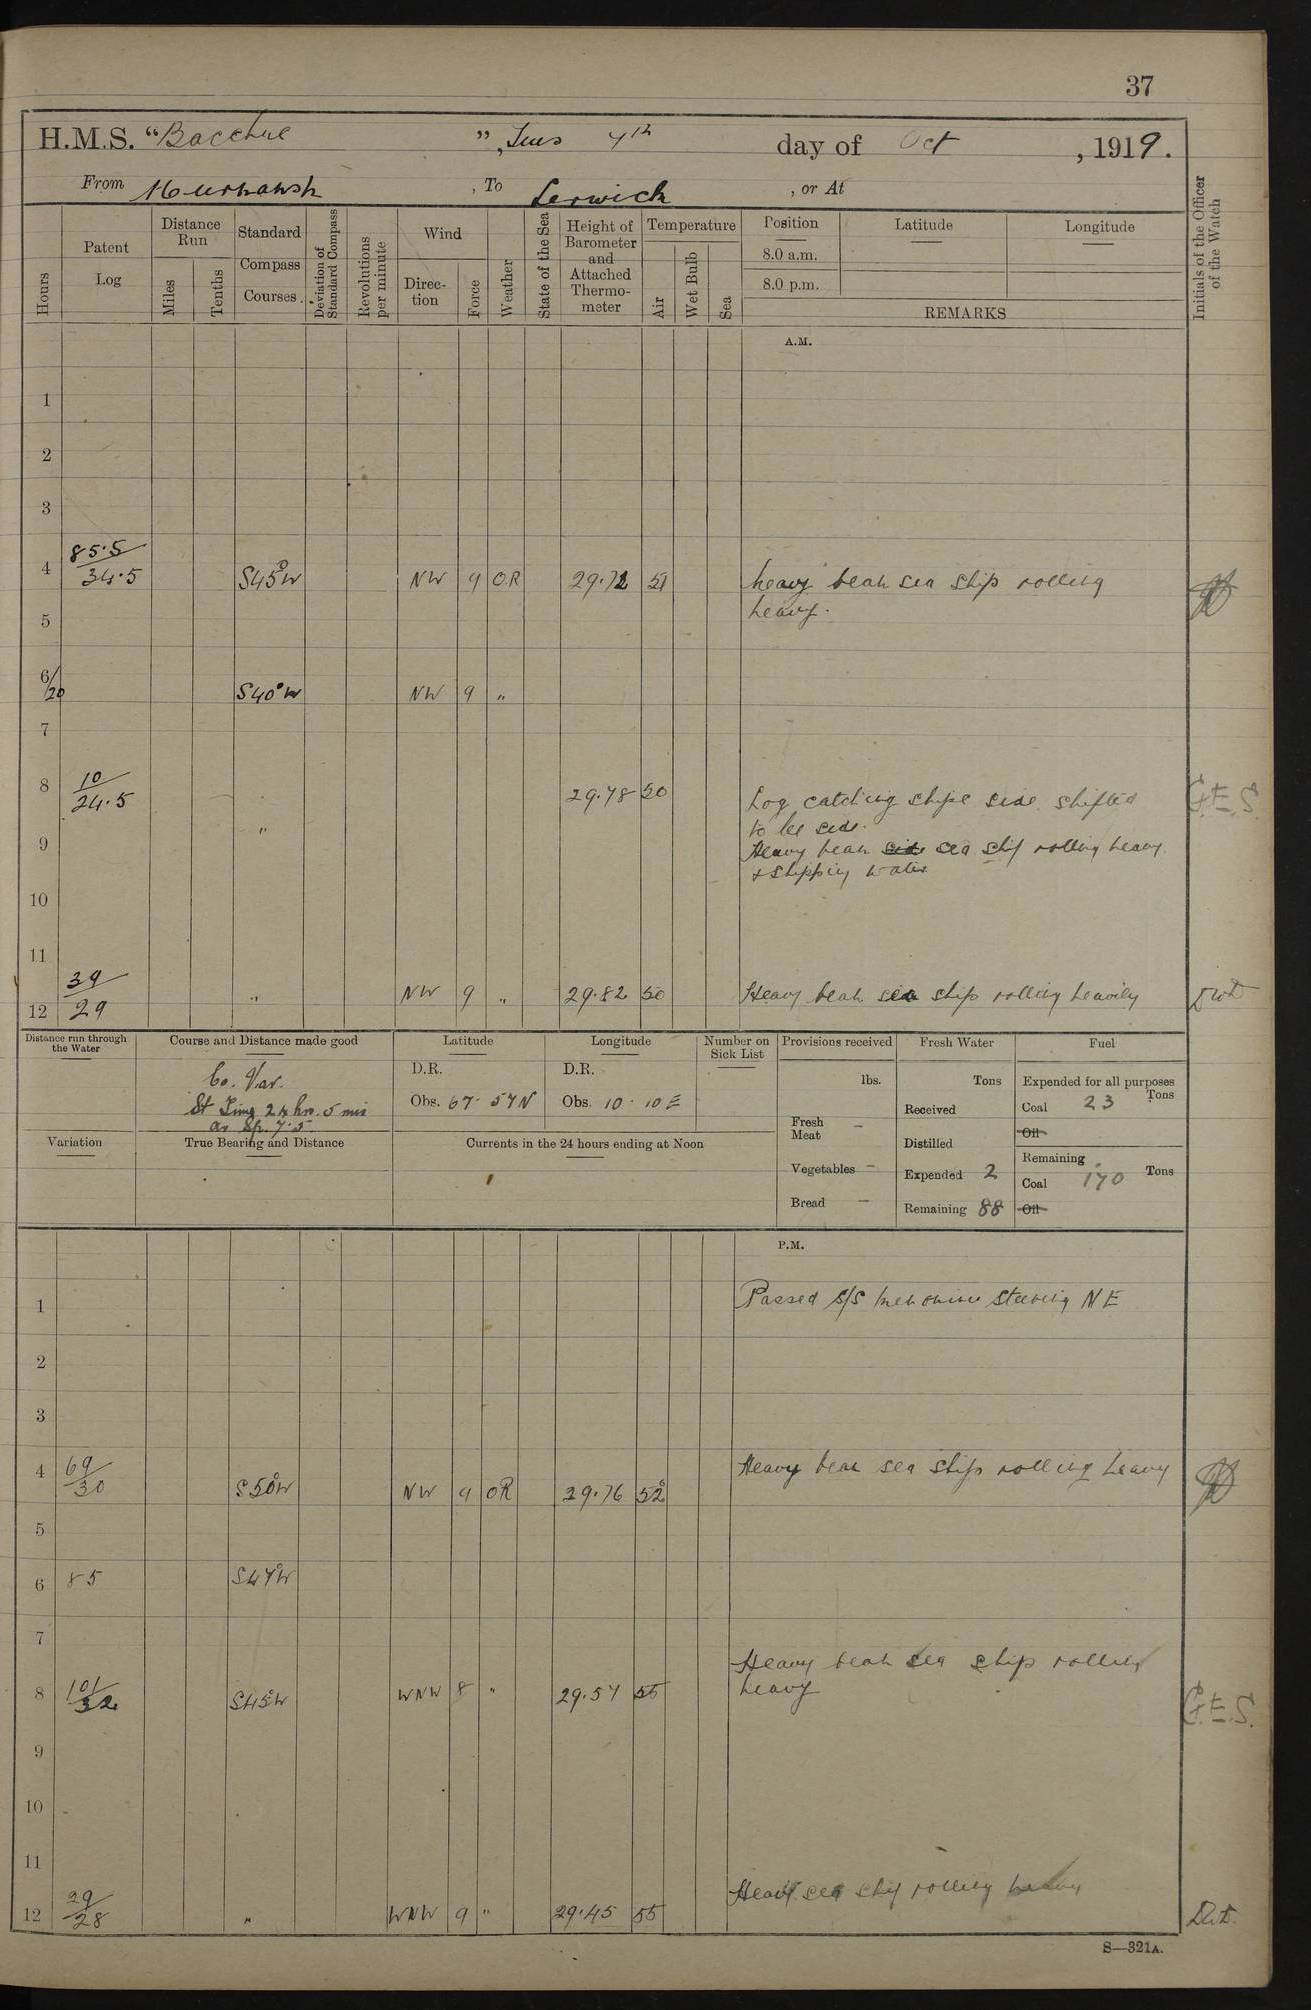 37
H.M.S. "Bacchus", Tues 7th day of Oct, 1919.
From Murmansk, To Lerwick, or At
Hours
Patent Log
Distance Run
Miles
Tenths
Standard Compass Courses
Deviation of Standard Compass
Revolutions per minute
Wind
Direction
Force
Weather
State of the Sea
Height of Barometer and Attached Thermometer
Temperature
Air
Wet Bulb
Sea
Position Latitude Longitude
8.0 a.m.
8.0 p.m.
REMARKS
Initials of the Officer of the Watch
A.M.
1
2
3
85.5
4 34.5 S45°W NW 9 OR 29.72 51 heavy beam sea ship rolling
heavy.
5
6/20 S40°W NW 9 "
7
8 10
24.5 29.78 50 Log catching ships side shifted G.E.S.
" to lee side.
9 Heavy beam side sea ship rolling heavy
& shipping water
10
11
39
12 29 " NW 9 " 29.82 50 Heavy beam sea ship rolling heavily
Distance run through the Water
Course and Distance made good
Latitude
Longitude
Number on Sick List
Provisions received
Fresh Water
Fuel
Co. Var.
St Time 24 hrs. 5 mis
av Sp. 7.5
D.R. D.R.
Obs. 67. 57 N Obs. 10. 10 E
lbs.
Fresh Meat –
Vegetables –
Bread –
Tons
Received
Distilled
Expended 2
Remaining 88
Expended for all purposes
Coal 23 Tons
Oil
Remaining
Coal 170 Tons
Oil
Variation
True Bearing and Distance
Currents in the 24 hours ending at Noon
P.M.
1 Passed S/S steering NE
2
3
4 69
30 S50°W NW 9 OR 29.76 52° Heavy beam sea ship rolling heavy
5
6 85 S47°W
7
Heavy beam sea ship rolling
8 101
32 S45°W WNW 8 " 29.57 55 heavy G.E.S.
9
10
11
29
12 28 " WNW 9 " 29.45 55 Heavy sea ship rolling heavy
S—321A.